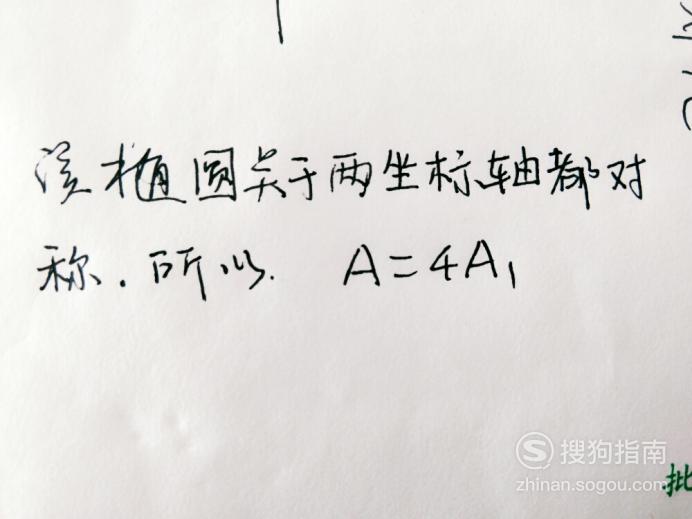 该椭圆关于两坐标轴都对
称.所以 A=4A₁
搜狗指南
zhinan.sogou.com
批